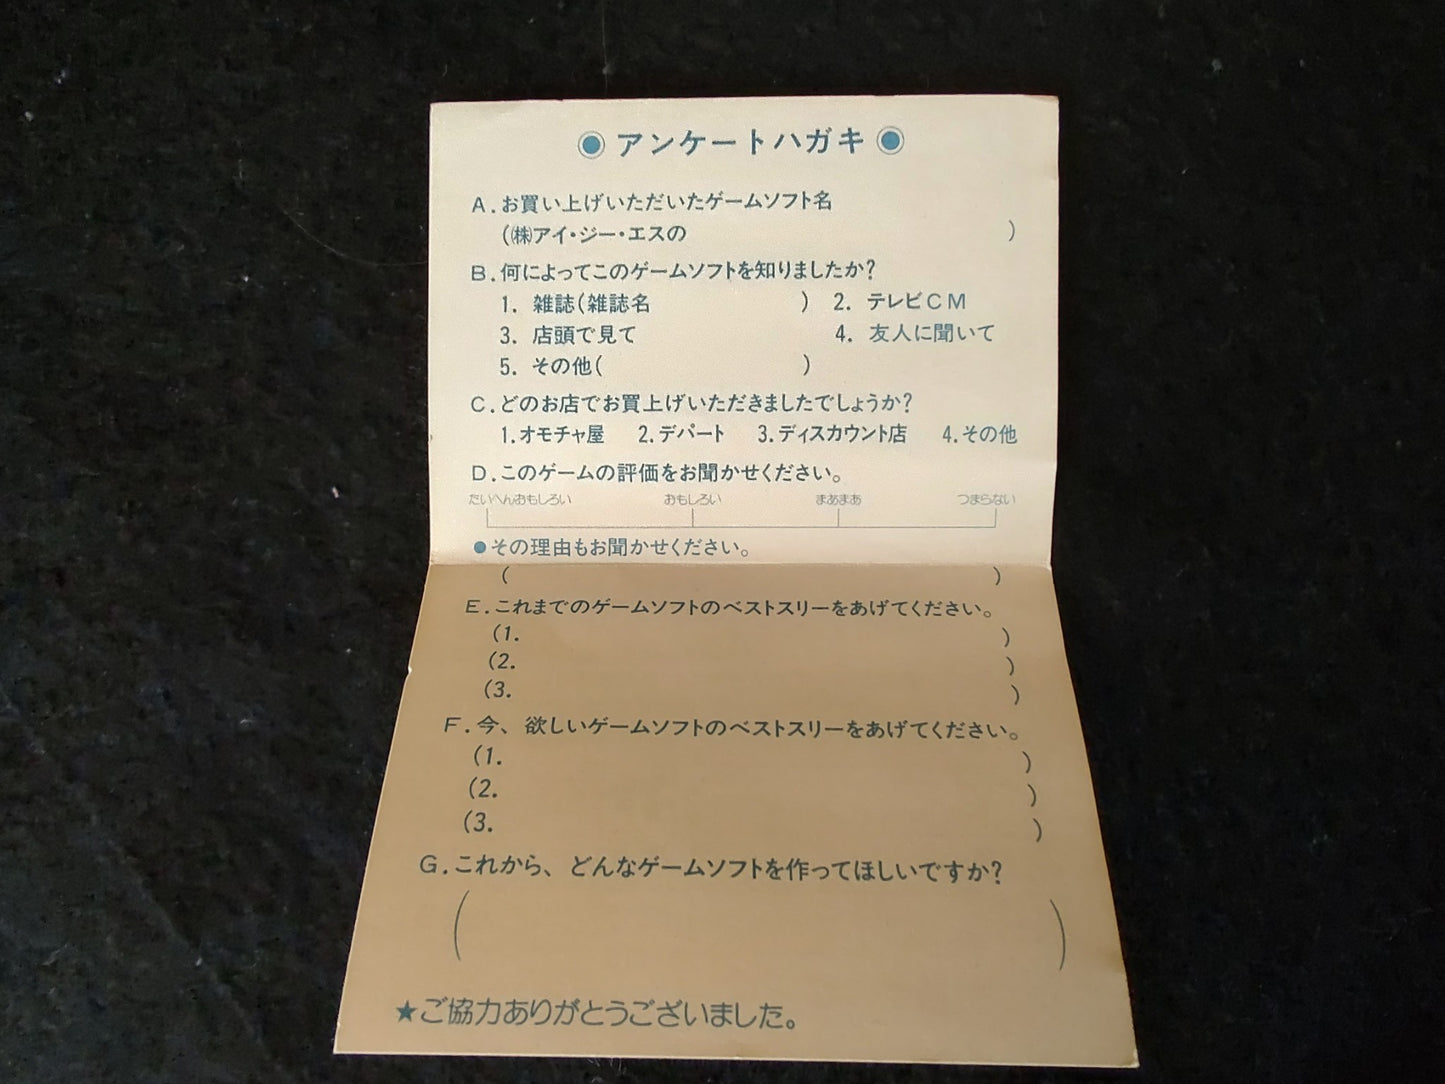 ◉ アンケートハガキ ◉
A.お買い上げいただいたゲームソフト名
(㈱アイ・ジー・エスの )
B.何によってこのゲームソフトを知りましたか?
1. 雑誌(雑誌名 ) 2. テレビCM
3. 店頭で見て 4. 友人に聞いて
5. その他( )
C.どのお店でお買上げいただきましたでしょうか?
1.オモチャ屋 2.デパート 3.ディスカウント店 4.その他
D.このゲームの評価をお聞かせください。
たいへんおもしろい おもしろい まあまあ つまらない
●その理由もお聞かせください。
( )
E.これまでのゲームソフトのベストスリーをあげてください。
(1. )
(2. )
(3. )
F.今、欲しいゲームソフトのベストスリーをあげてください。
(1. )
(2. )
(3. )
G.これから、どんなゲームソフトを作ってほしいですか?
( )
★ご協力ありがとうございました。